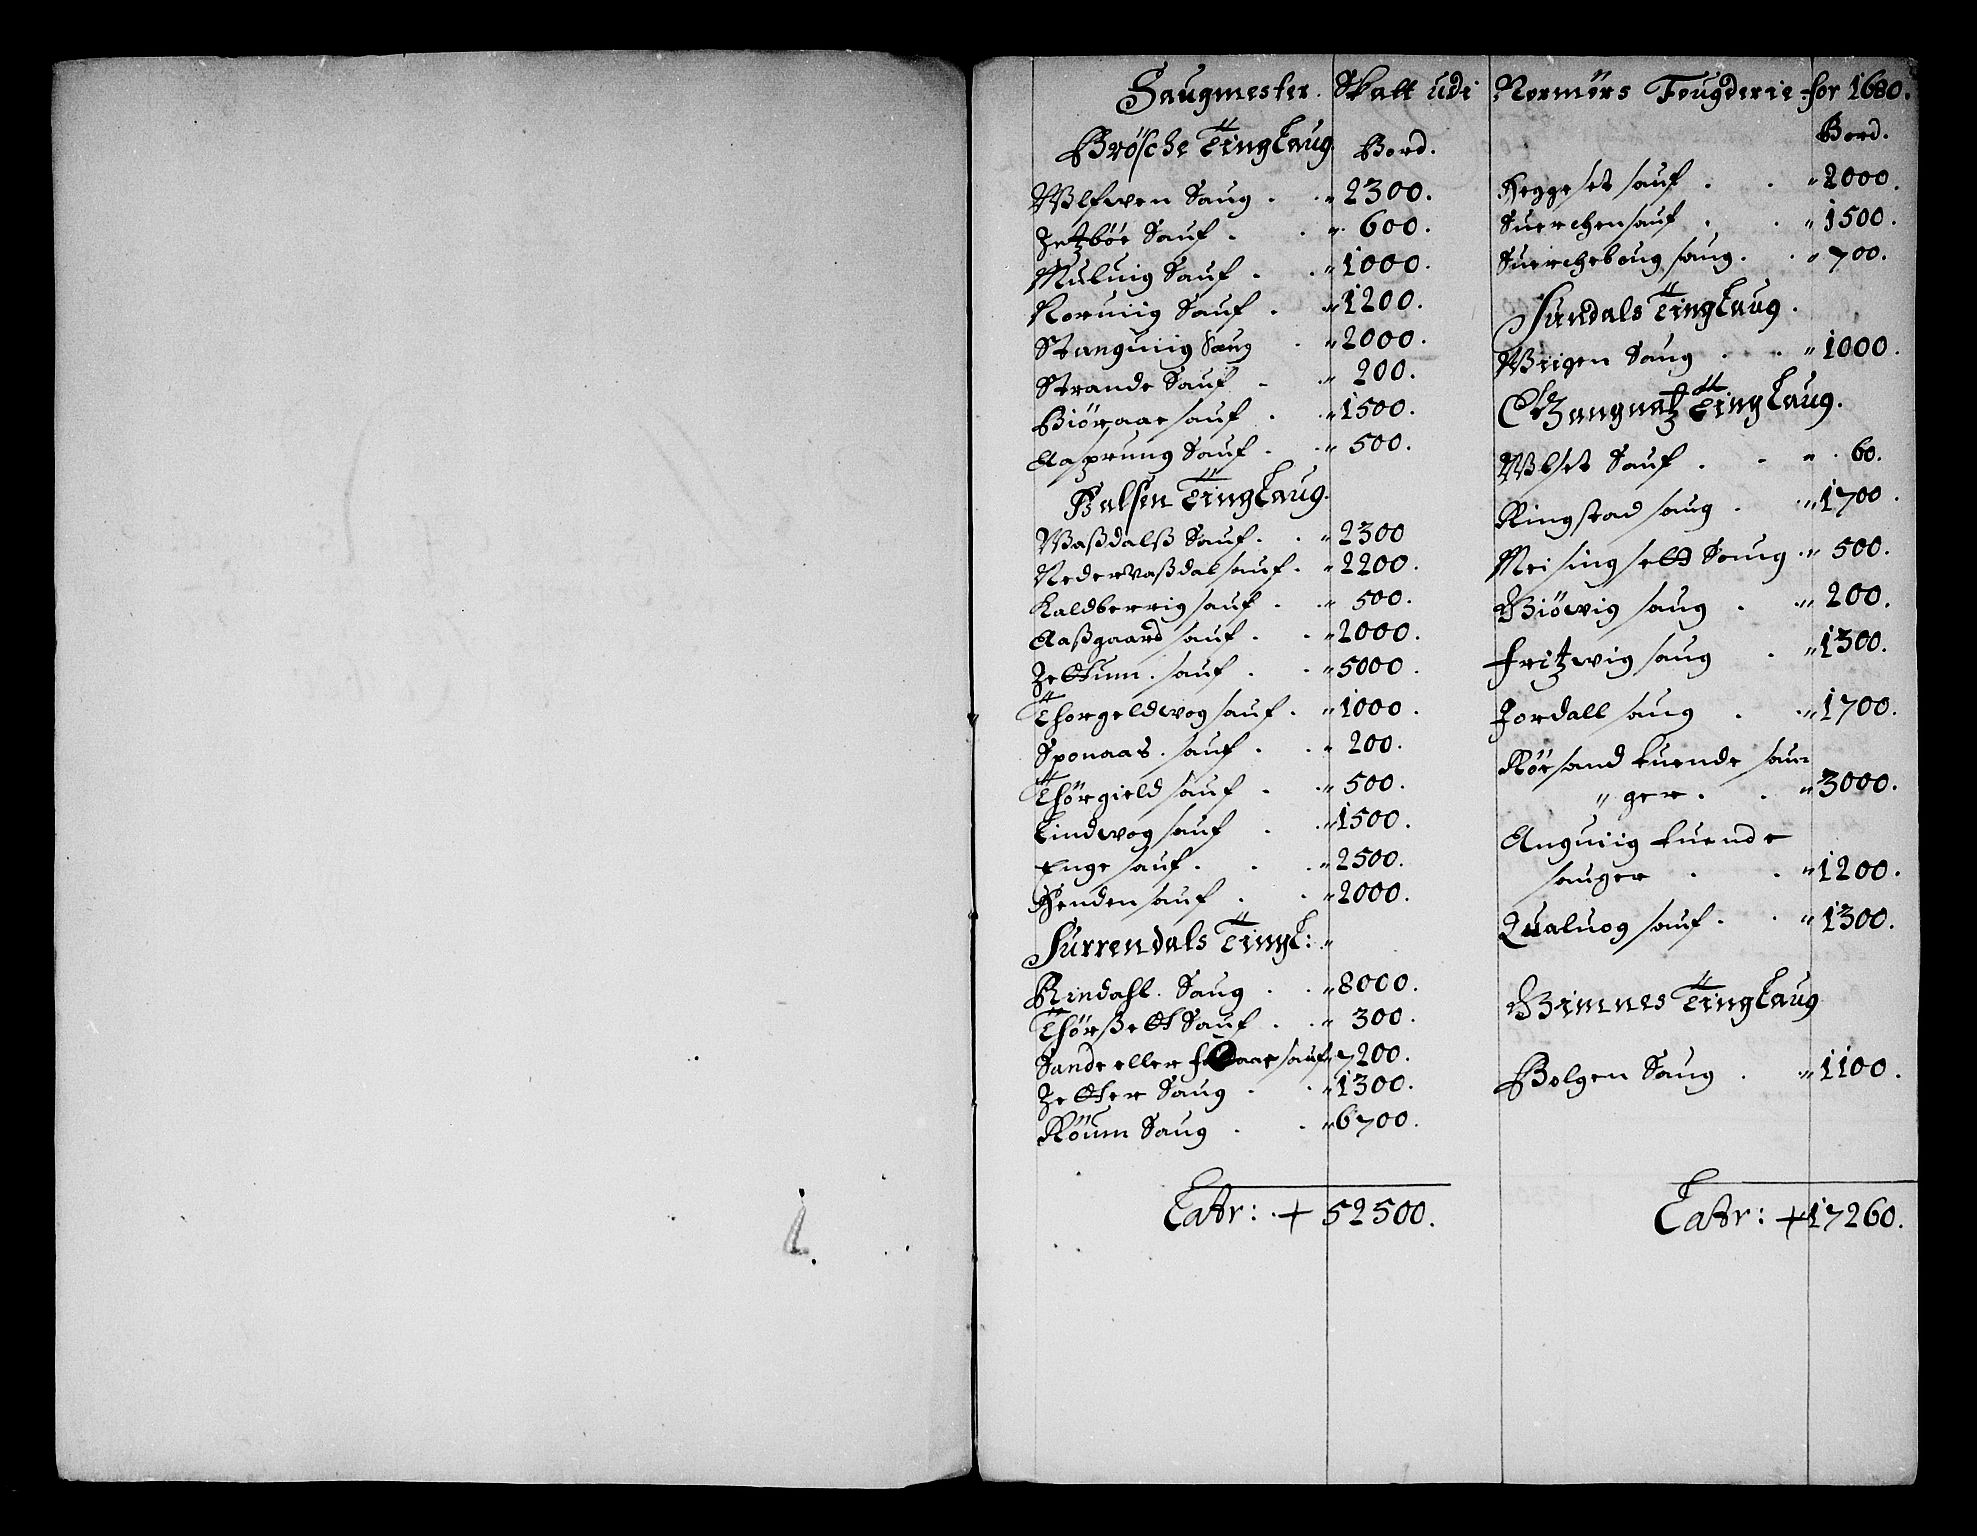 Saugmester. Skatt udi Normörs Fougderie for 1680.
Bröche Tinglaug Bord.
Wlfwen Saug . . " 2300.
Zetzböe Sauf . . " 600.
Muluiig Sauf . . " 1000.
Noruiig Sauf . " 1200.
Stanguiig Saug . " 2000.
Strande Sauf . . " 200.
Biöraae sauf . . " 1500.
Aasprung Sauf . . " 500.
Halsen Tinglaug.
Waßdalß Sauf . . " 2300
Nederwaßdal sauf . " 2200.
Kaldberrig sauf . . " 500.
Aaßgaard sauf . . " 2000.
Zettum . sauf . . " 5000.
Thorgeldwog sauf . " 1000.
Sponaas . sauf . . " 200.
Thörgield sauf . . " 500.
Lindwog sauf . . " 1500.
Enge sauf . . . " 2500.
Henden sauf . . " 2000.
Surrendals Tingl: "
Rindahl . Saug . . " 8000.
Thörßett Sauf . . " 300.
Sande eller sauf " 7200.
Zetter Saug . . " 1300.
Röum Saug . . " 6700.
Latr: + 52500.
Bord.
Heggeset sauf . . " 2000.
Suerchen sauf . . " 1500.
Suercheboug saug . . " 700.
Sundals Tinglaug.
Wiigen Saug . . " 1000.
Gangnetz Tinglaug.
Wlset Sauf . . " . 60.
Ringstad saug . . " 1700.
Meisingsett Saug . " 500.
Giöwig saug . . " 200.
Fritzwig saug . " 1300.
Jordall saug . . " 1700.
Röesand tuende sau=
" ger . . " 3000.
Anguiig tuende
sauger . . " 1200.
Qualuog sauf . . " 1300.
Gimnes Tinglaug
Bolgen Saug . " 1100.
Latr: + 17260.